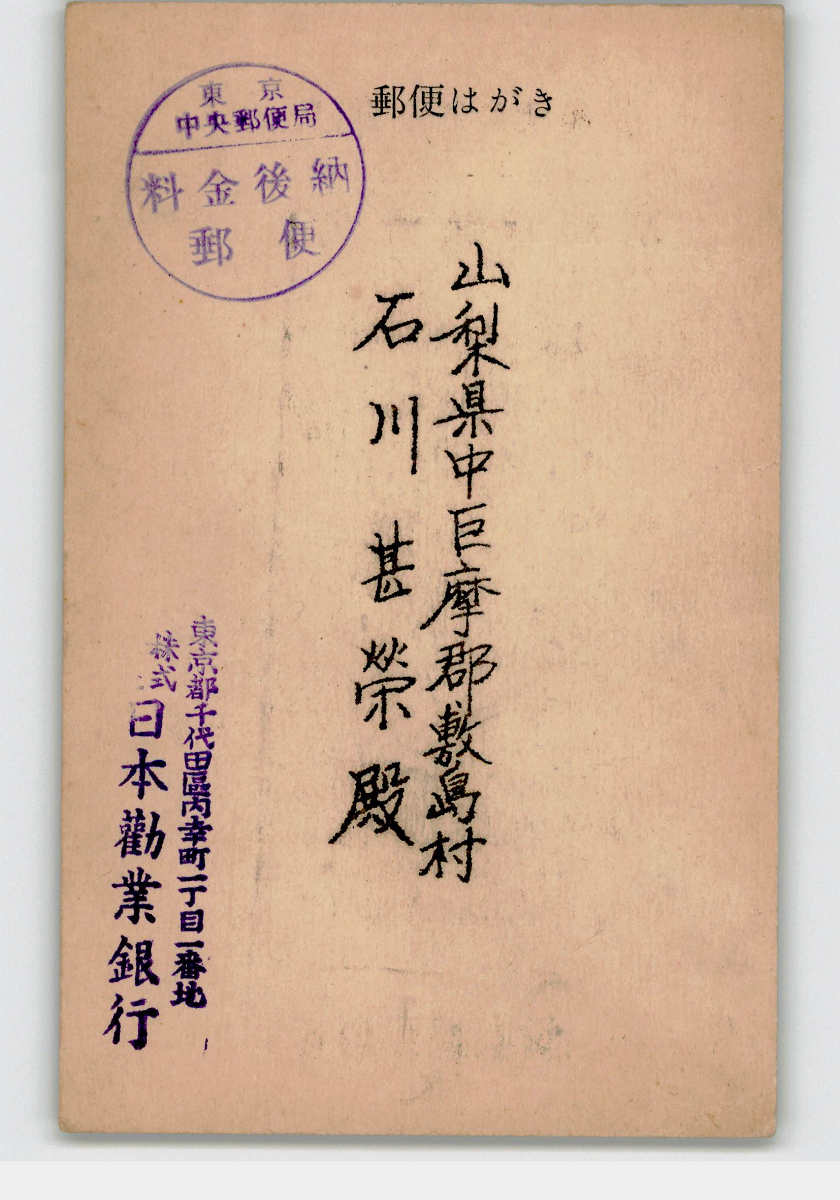 郵便はがき
東京
中央郵便局
料金後納
郵便
山梨県中巨摩郡敷島村
石川甚榮殿
東京都千代田區内幸町一丁目一番地
株式
日本勸業銀行